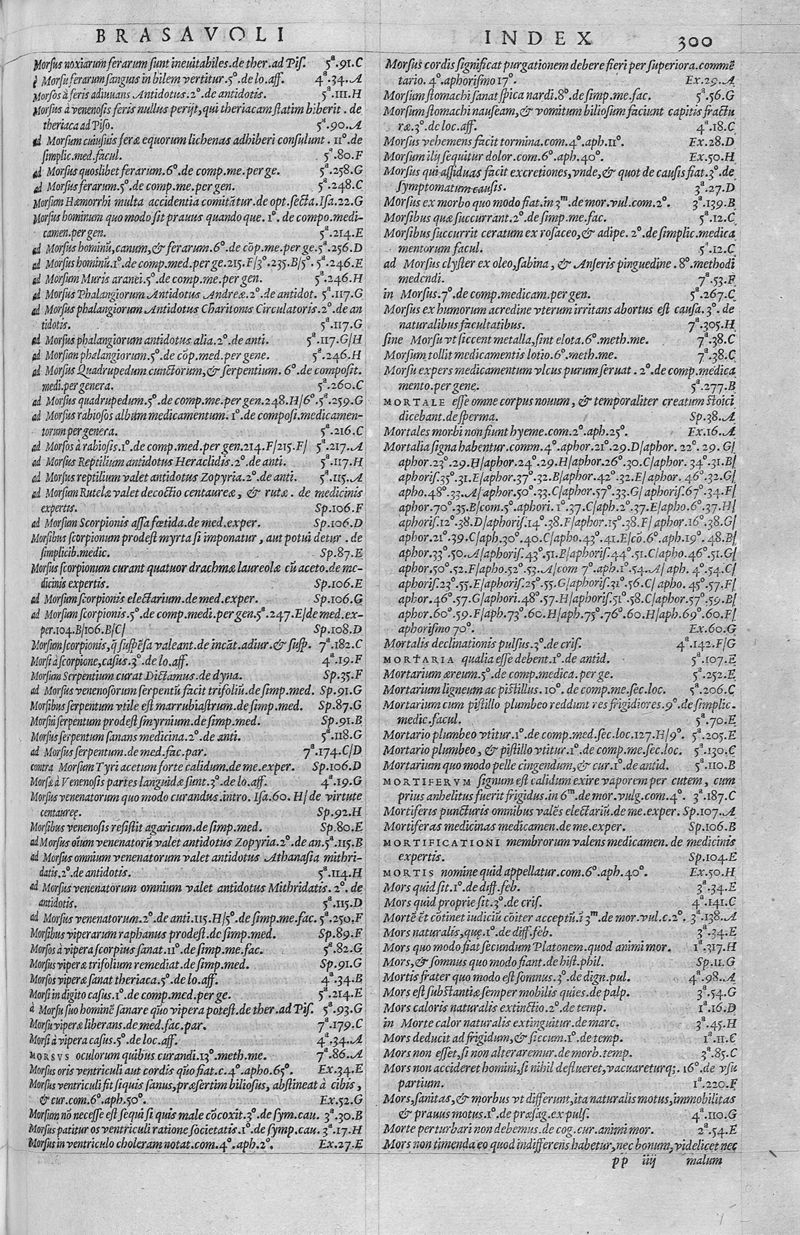 BRASAVOLI
Morsus noxiarum ferarum sunt ineuitabiles.de ther.ad Pis. 5ª.91.C
à Morsu ferarum sanguis in bilem vertitur.5°.de lo.aff. 4ª.34.A
Morsos à feris adiuuans Antidotus.2°.de antidotis. 5ª.111.H
Morsus à venenosis feris nullus perijt,qui theriacam statim biberit. de
theriaca ad Piso. 5ª.90.A
ad Morsum cuiusuis feræ equorum lichenas adhiberi consulunt. 11°.de
simplic.med.facul. 5ª.80.F
ad Morsus quoslibet ferarum.6°.de comp.me.per ge. 5ª.258.G
ad Morsus ferarum.5°.de comp.me.per gen. 5ª.248.C
Morsum Hæmorrhi multa accidentia comitãtur.de opt.secta.Isa.22.G
Morsus hominum quo modo fit prauus quando que. 1°. de compo.medi-
camen.per gen. 5ª.214.E
ad Morsus hominũ,canum,& ferarum.6°.de cõp.me.per ge.5ª.256.D
ad Morsus hominũ.1°.de comp.med.per ge.215.F/3°.235.B/5°. 5ª.246.E
ad Morsum Muris aranei.5°.de comp.me.per gen. 5ª.246.H
ad Morsus Phalangiorum Antidotus Andreæ.2°.de antidot. 5ª.117.G
ad Morsus phalangiorum Antidotus Charitonis Circulatoris.2°.de an
tidotis. 5ª.117.G
ad Morsus phalangiorum antidotus alia.2°.de anti. 5ª.117.G/H
ad Morsum phalangiorum.5°.de cõp.med.per gene. 5ª.246.H
ad Morsus Quadrupedum cunctorum,& serpentium. 6°.de composit.
medi.per genera. 5ª.260.C
ad Morsus quadrupedum.5°.de comp.me.per gen.248.H/6°.5ª.259.G
ad Morsus rabiosos album medicamentum. 1°.de composi.medicamen-
torum per genera. 5ª.216.C
ad Morsos à rabiosis.1°.de comp.med.per gen.214.F/215.F/ 5ª.217.A
ad Morsus Reptilium antidotus Heraclidis.2°.de anti. 5ª.117.H
ad Morsus reptilium valet antidotus Zopyria.2°.de anti. 5ª.115.A
ad Morsum Rutelæ valet decoctio centaureæ, & rutæ. de medicinis
expertis. Sp.106.F
ad Morsum Scorpionis assa fœtida.de med.exper. Sp.106.D
Morsibus scorpionum prodest myrta si imponatur, aut potui detur. de
simplicib.medic. Sp.87.E
Morsus scorpionum curant quatuor drachmæ laureolæ cũ aceto.de me-
dicinis expertis. Sp.106.E
ad Morsum scorpionis electarium.de med.exper. Sp.106.G
ad Morsum scorpionis.5°.de comp.medi.per gen.5ª.247.E/de med.ex-
per.104.B/106.B/C/ Sp.108.D
Morsum scorpionis,q̃ suspẽsa valeant.de incãt.adiur.& susp. 7ª.182.C
Morsi à scorpione,casus.3°.de lo.aff. 4ª.19.F
Morsum Serpentium curat Dictamus.de dyna. Sp.35.F
ad Morsus venenosorum serpentũ facit trifoliũ.de simp.med. Sp.91.G
Morsibus serpentum vtile est marrubiastrum.de simp.med. Sp.87.G
Morsui serpentum prodest smyrnium.de simp.med. Sp.91.B
Morsus serpentum sanans medicina.2°.de anti. 5ª.118.G
ad Morsum serpentum.de med.fac.par. 7ª.174.C/D
contra Morsum Tyri acetum forte calidum.de me.exper. Sp.106.D
Morsæ à Venenosis partes languidæ sunt.3°.de lo.aff. 4ª.19.G
Morsus venenatorum quo modo curandus.intro. Isa.60.H/de virtute
centaureę. Sp.92.H
Morsibus venenosis resistit agaricum.de simp.med. Sp.80.E
ad Morsus oĩum venenatorũ valet antidotus Zopyria.2°.de an.5ª.115.B
ad Morsus omnium venenatorum valet antidotus Athanasia mithri-
datis.2°.de antidotis. 5ª.114.H
ad Morsus venenatorum omnium valet antidotus Mithridatis. 2°. de
antidotis. 5ª.115.D
ad Morsus venenatorum.2°.de anti.115.H/5°.de simp.me.fac. 5ª.250.F
Morsibus viperarum raphanus prodest.de simp.med. Sp.89.F
Morsos à vipera scorpius sanat.11°.de simp.me.fac. 5ª.82.G
Morsus viperæ trifolium remediat.de simp.med. Sp.91.G
Morsos viperæ sanat theriaca.5°.de lo.aff. 4ª.34.B
Morsi in digito casus.1°.de comp.med.per ge. 5ª.214.E
à Morsu suo hominẽ sanare quo vipera potest.de ther.ad Pis. 5ª.93.G
Morsu viperæ liberans.de med.fac.par. 7ª.179.C
Morsi à vipera casus.5°.de loc.aff. 4ª.34.A
MORSVS oculorum quibus curandi.13°.meth.me. 7ª.86.A
Morsus oris ventriculi aut cordis quo fiat.c.4°.apho.65°. Ex.34.E
Morsus ventriculi fit siquis sanus,præsertim biliosus, abstineat à cibis,
& cur.com.6°.aph.50°. Ex.52.G
Morsum nõ necesse est sequi si quis male cõcoxit.3°.de sym.cau. 3ª.30.B
Morsus patitur os ventriculi ratione societatis.1°.de symp.cau. 3ª.17.H
Morsus in ventriculo choleram notat.com.4°.aph.2°. Ex.27.E
INDEX 300
Morsus cordis significat purgationem debere fieri per superiora.commẽ
tario. 4°.aphorismo 17°. Ex.29.A
Morsum stomachi sanat spica nardi.8°.de simp.me.fac. 5ª.56.G
Morsum stomachi nauseam,& vomitum biliosum faciunt capitis fractu
ræ.3°.de loc.aff. 4ª.18.C
Morsus vehemens facit tormina.com.4°.aph.11°. Ex.28.D
Morsum ilij sequitur dolor.com.6°.aph.40°. Ex.50.H
Morsus qui assiduas facit excretiones,vnde,& quot de causis fiat.3°.de
symptomatum causis. 3ª.27.D
Morsus ex morbo quo modo fiat.in 3m.de mor.vul.com.2°. 3ª.139.B
Morsibus quæ succurrant.2°.de simp.me.fac. 5ª.12.C
Morsibus succurrit ceratum ex rosaceo,& adipe. 2°.de simplic.medica
mentorum facul. 5ª.12.C
ad Morsus clyster ex oleo,sabina, & Anseris pinguedine. 8°.methodi
medendi. 7ª.53.F
in Morsus.7°.de comp.medicam.per gen. 5ª.267.C
Morsus ex humorum acredine vterum irritans abortus est causa.3°.de
naturalibus facultatibus. 7ª.305.H
sine Morsu vt siccent metalla,sint elota.6°.meth.me. 7ª.38.C
Morsum tollit medicamentis lotio.6°.meth.me. 7ª.38.C
Morsu expers medicamentum vlcus purum seruat. 2°.de comp.medica
mento.per gene. 5ª.277.B
MORTALE esse omne corpus nouum, & temporaliter creatum stoici
dicebant.de sperma. Sp.38.A
Mortales morbi non fiunt hyeme.com.2°.aph.25°. Ex.16.A
Mortalia signa habentur.comm.4°.aphor.21°.29.D/aphor. 22°. 29. G/
aphor.23°.29.H/aphor.24°.29.H/aphor.26°.30.C/aphor. 34°.31.B/
aphoris.35°.31.E/aphor.37°.32.B/aphor.42°.32.E/aphor. 46°.32.G/
apho.48°.33.A/aphor.50°.33.C/aphor.57°.33.G/aphoris.67°.34.F/
aphor.70°.35.B/com.5°.aphori. 1°.37.C/aph.2°.37.E/apho.6°.37.H/
aphoris.12°.38.D/aphoris.14°.38.F/aphor.15°.38.F/aphor.16°.38.G/
aphor.21°.39.C/aph.30°.40.C/apho.43°.41.E/cõ.6°.aph.19°. 48.B/
aphor.33°.50.A/aphoris.43°.51.B/aphoris.44°.51.C/apho.46°.51.G/
aphor.50°.52.F/apho.52°.53.A/com 7°.aph.1°.54.A/aph. 4°.54.C/
aphoris.23°.55.F/aphoris.25°.55.G/aphoris.31°.56.C/apho. 45°.57.F/
aphor.46°.57.G/aphori.48°.57.H/aphoris.51°.58.C/aphor.57°.59.B/
aphor.60°.59.F/aph.73°.60.H/aph.75°.76°.60.H/aph.69°.60.F/
aphorismo 70°. Ex.60.G
Mortalis declinationis pulsus.3°.de cris. 4ª.142.F/G
MORTARIA qualia esse debent.1°.de antid. 5ª.107.E
Mortarium æreum.5°.de comp.medica.per ge. 5ª.252.E
Mortarium ligneum ac pistillus. 10°.de comp.me.sec.loc. 5ª.206.C
Mortarium cum pistillo plumbeo reddunt res frigidiores.9°.de simplic.
medic.facul. 5ª.70.E
Mortario plumbeo vtitur.1°.de comp.med.sec.loc.127.H/9°. 5ª.205.E
Mortario plumbeo, & pistillo vtitur.1°.de comp.me.sec.loc. 5ª.130.C
Mortarium quo modo pelle cingendum,& cur.1°.de antid. 5ª.110.B
MORTIFERVM signum est calidum exire vaporem per cutem, cum
prius anhelitus fuerit frigidus.in 6m.de mor.vulg.com.4°. 3ª.187.C
Mortiferis puncturis omnibus valẽs electariũ.de me.exper. Sp.107.A
Mortiferas medicinas medicamen.de me.exper. Sp.106.B
MORTIFICATIONI membrorum valens medicamen.de medicinis
expertis. Sp.104.E
MORTIS nomine quid appellatur.com.6°.aph.40°. Ex.50.H
Mors quid sit.1°.de diff.feb. 3ª.34.E
Mors quid proprie sit.3°.de cris. 4ª.141.C
Mortẽ ẽt cõtinet iudiciũ cõiter acceptũ.ĩ 3m.de mor.vul.c.2°. 3ª.138.A
Mors naturalis,quę.1°.de diff.feb. 3ª.34.E
Mors quo modo fiat secundum Platonem.quod animi mor. 1ª.317.H
Mors,& somnus quo modo fiant.de hist.phil. Sp.11.G
Mortis frater quo modo est somnus.3°.de dign.pul. 4ª.98.A
Mors est substantiæ semper mobilis quies.de palp. 3ª.54.G
Mors caloris naturalis extinctio.2°.de temp. 1ª.16.D
in Morte calor naturalis extinguitur.de marc. 3ª.45.H
Mors deducit ad frigidum,& siccum.1°.de temp. 1ª.11.C
Mors non esset,si non alteraremur.de morb.temp. 3ª.85.C
Mors non accideret homini,si nihil deflueret,vacuareturq;.16°.de vsu
partium. 1ª.220.F
Mors,sanitas,& morbus vt differunt,ita naturalis motus,immobilitas
& prauus motus.1°.de præsag.ex puls. 4ª.110.G
Morte perturbari non debemus.de cog.cur.animi mor. 2ª.54.E
Mors non timenda eo quod indifferens habetur,nec bonum,videlicet nec
pp iiij malum